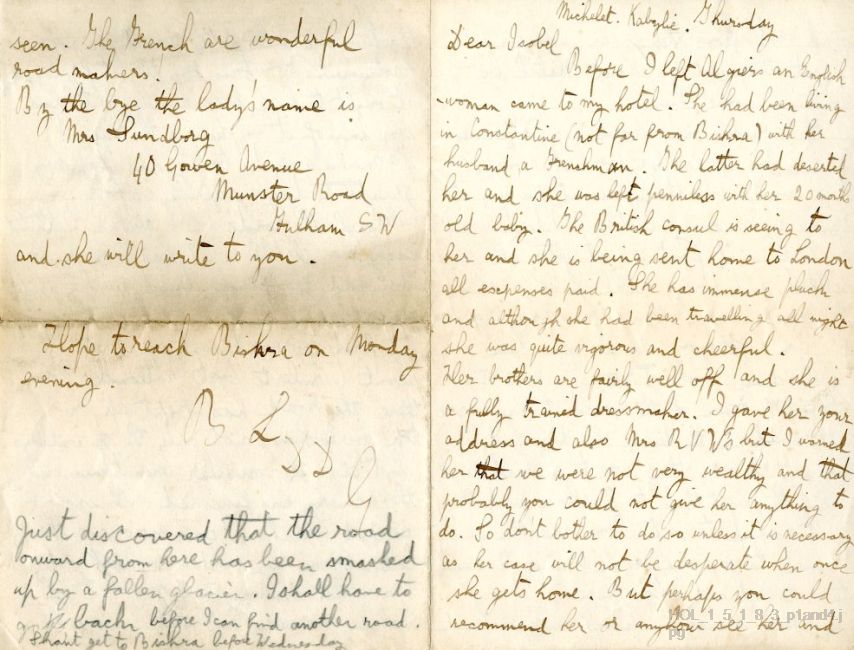 Michelet. Kabylie. Thursday
Dear Isobel
Before I left Algiers an English
woman came to my hotel. She had been living
in Constantine (not far from Biskra) with her
husband a Frenchman. The latter had deserted
her and she was left penniless with her 20 months
old baby. The British consul is seeing to
her and she is being sent home to London
all expenses paid. She has immense pluck
and although she had been travelling all night
she was quite vigorous and cheerful.
Her brothers are fairly well off and she is
a fully trained dressmaker. I gave her your
address and also Mrs R V W's but I warned
her that we were not very wealthy and that
probably you could not give her anything to
do. So dont bother to do so unless it is necessary
as her case will not be desperate when once
she gets home. But perhaps you could
recommend her or anyhow see her and
seen. The French are wonderful
road makers.
By the bye the lady's name is
Mrs Sundborg
40 Gowen Avenue
Munster Road
Fulham SW
and she will write to you.
Hope to reach Biskra on Monday
evening.
B L
D D
G
Just discovered that the road
onward from here has been smashed
up by a fallen glacier. I shall have to
back before I can find another road.
Shant get to Biskra before Wednesday
HOL_1_5_1_8_3_p1and4.j
pg